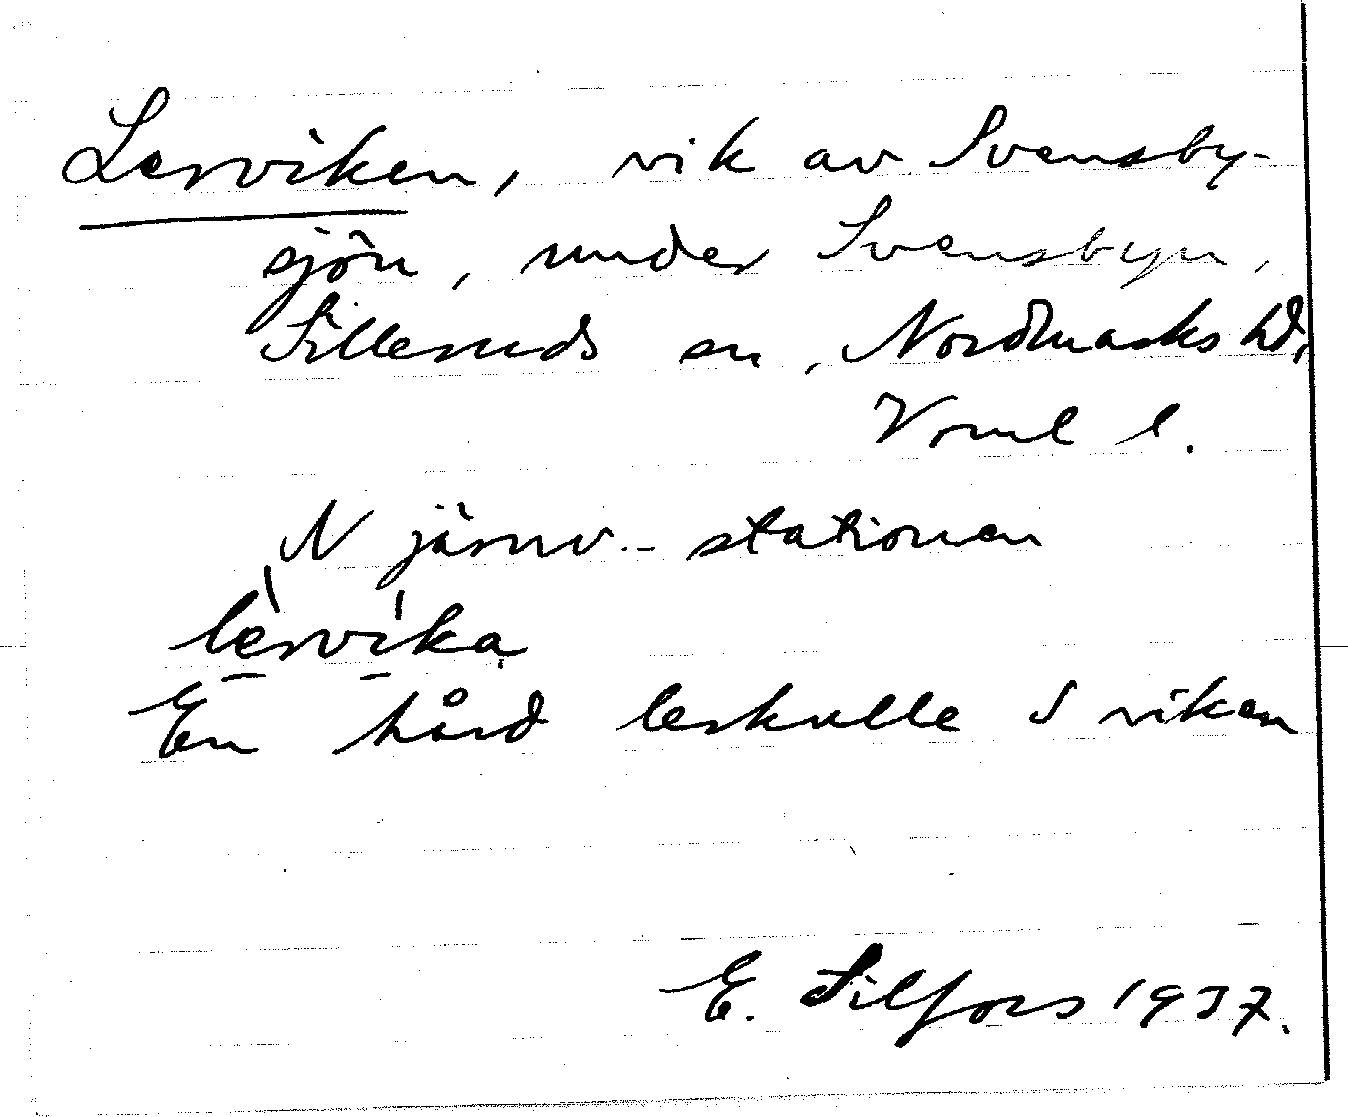 Lerviken, vik av Svensby-
sjön, under Svensbyn,
Silleruds sn, Nordmarks hd,
Vrml l.
N järnv.-stationen
lèrvíka
En hård lerkulle S viken
E. Silfors 1937.